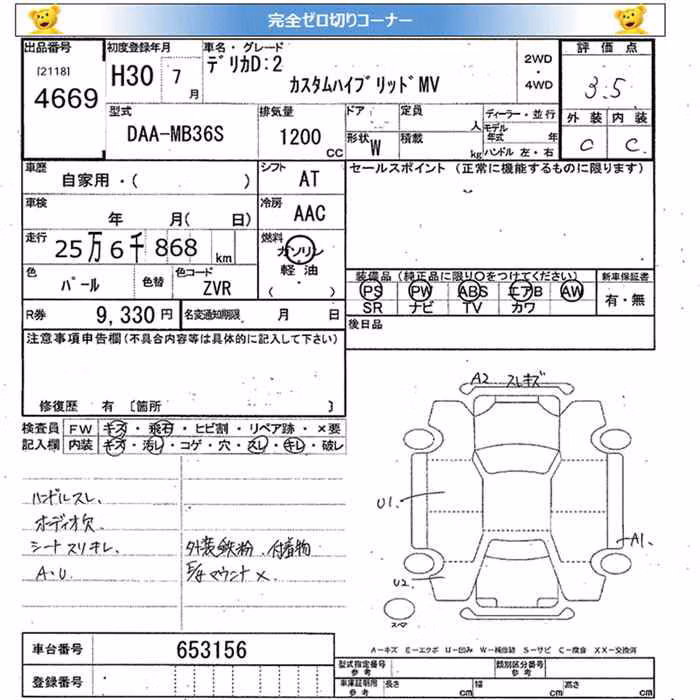 完全ゼロ切りコーナー
出品番号 初度登録年月 車名・グレード 評価点
[2118] H30 7 月 デリカD:2 2WD
4669 カスタムハイブリッドMV 4WD 3.5
型式 排気量 ドア 定員 人 ディーラー・並行 外装 内装
DAA-MB36S 1200 CC 形状 W 積載 kg モデル年式 年 ハンドル 左・右 C C
車歴 シフト セールスポイント (正常に機能するものに限ります)
自家用・( ) AT
車検 年 月( 日) 冷房 AAC
走行 25万6千868 km 燃料 ガソリン
軽油
( )
色 パール 色替 色コード ZVR
装備品 (純正品に限り○をつけてください) 新車保証書
PS PW ABS エアB AW 有・無
SR ナビ TV カワ
R券 9,330円 名変通知期限 月 日 後日品
注意事項申告欄(不具合内容等は具体的に記入して下さい)
修復歴 有 〔箇所 〕
検査員 FW キズ・飛石・ヒビ割・リペア跡・×要
記入欄 内装 キズ・汚レ・コゲ・穴・スレ・キレ・破レ
A2 スレキズ
ハンドルスレ、
オーディオ欠
シートスリキレ、
A・U
外装鉄粉、付着物
U1
A1
U2
スペア
A-キズ E-エクボ U-凹み W-補修跡 S-サビ C-腐食 XX-交換済
車台番号 653156
登録番号
型式指定番号 参考 類別区分番号 参考
車庫証明用 参考 長さ cm 幅 cm 高さ cm